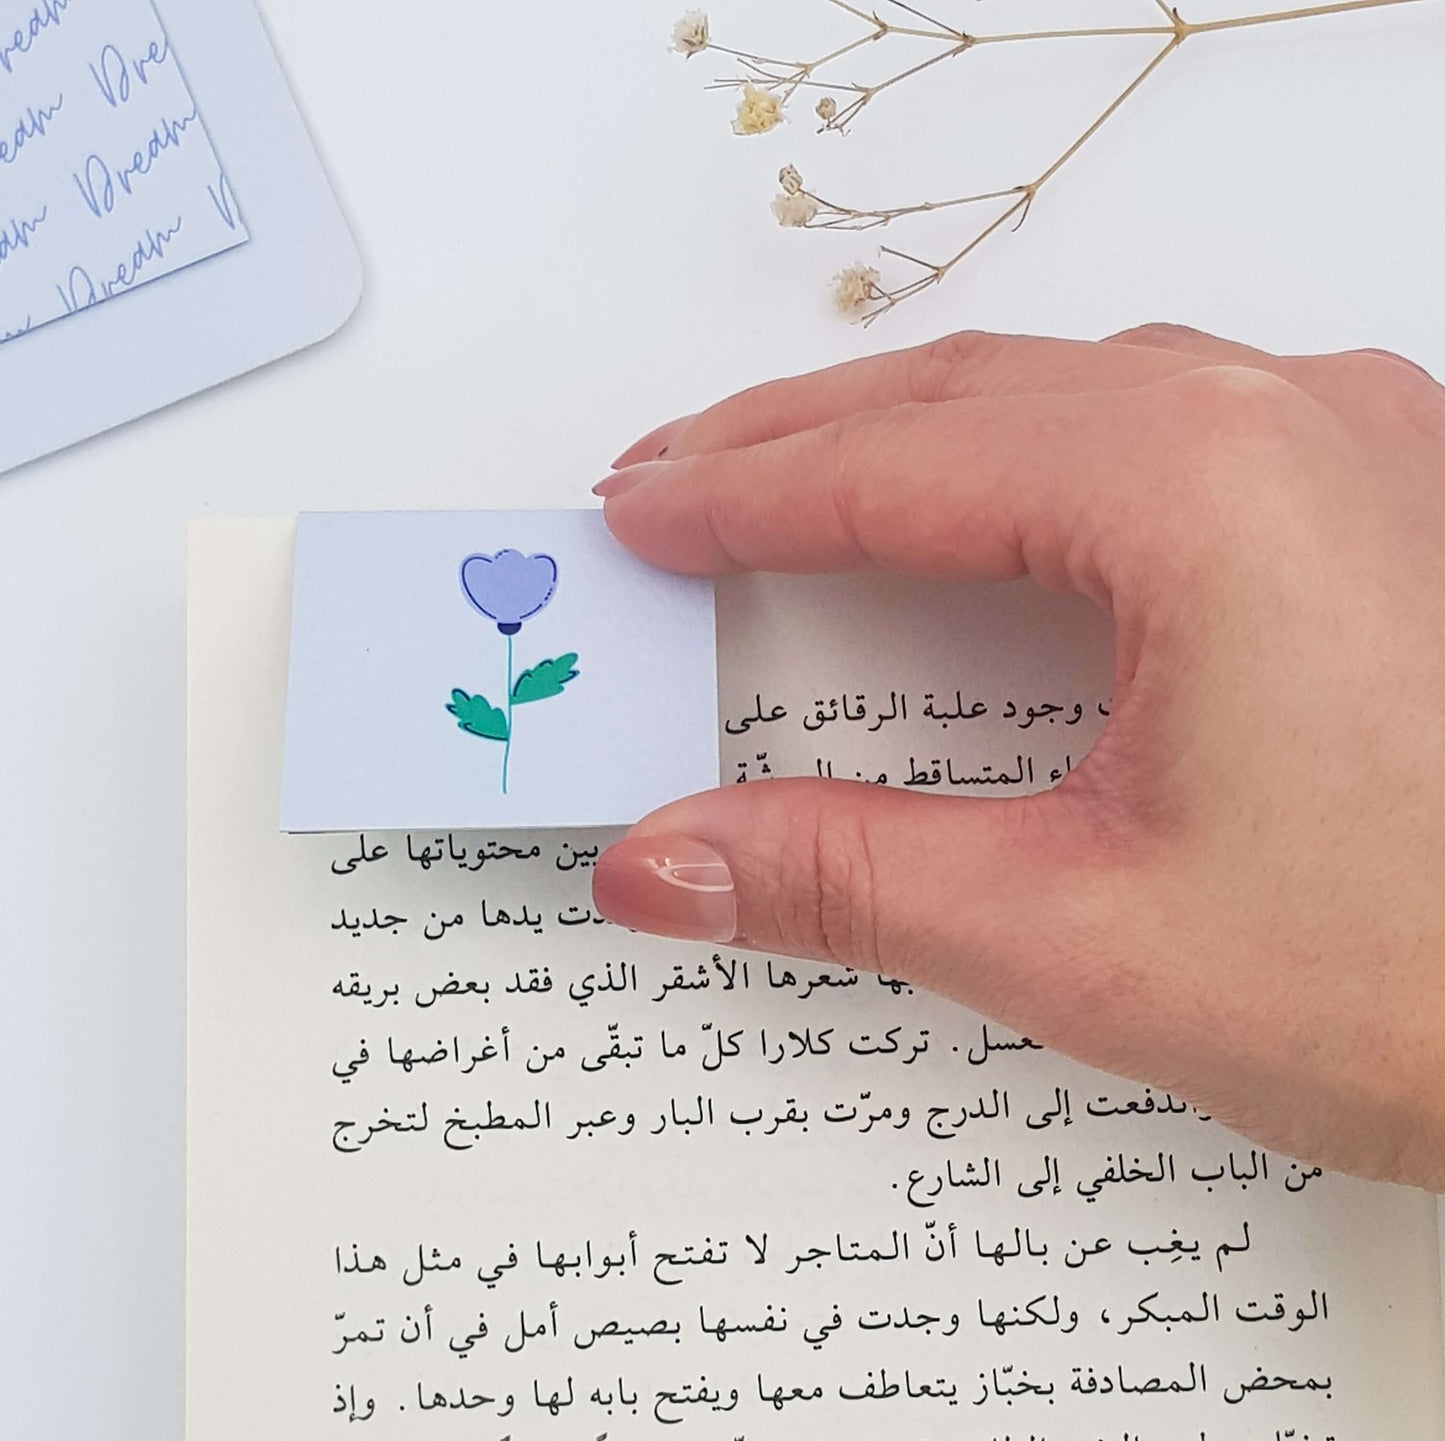 Dream
Dream Dream
Dream Dream
Dream
وجود علبة الرقائق على
المتساقط من
بين محتوياتها على
يدها من جديد
شعرها الأشقر الذي فقد بعض بريقه
تركت كلارا كلّ ما تبقّى من أغراضها في
إلى الدرج ومرّت بقرب البار وعبر المطبخ لتخرج
من الباب الخلفي إلى الشارع.
لم يغِب عن بالها أنّ المتاجر لا تفتح أبوابها في مثل هذا
الوقت المبكر، ولكنها وجدت في نفسها بصيص أمل في أن تمرّ
بمحض المصادفة بخبّاز يتعاطف معها ويفتح بابه لها وحدها. وإذ